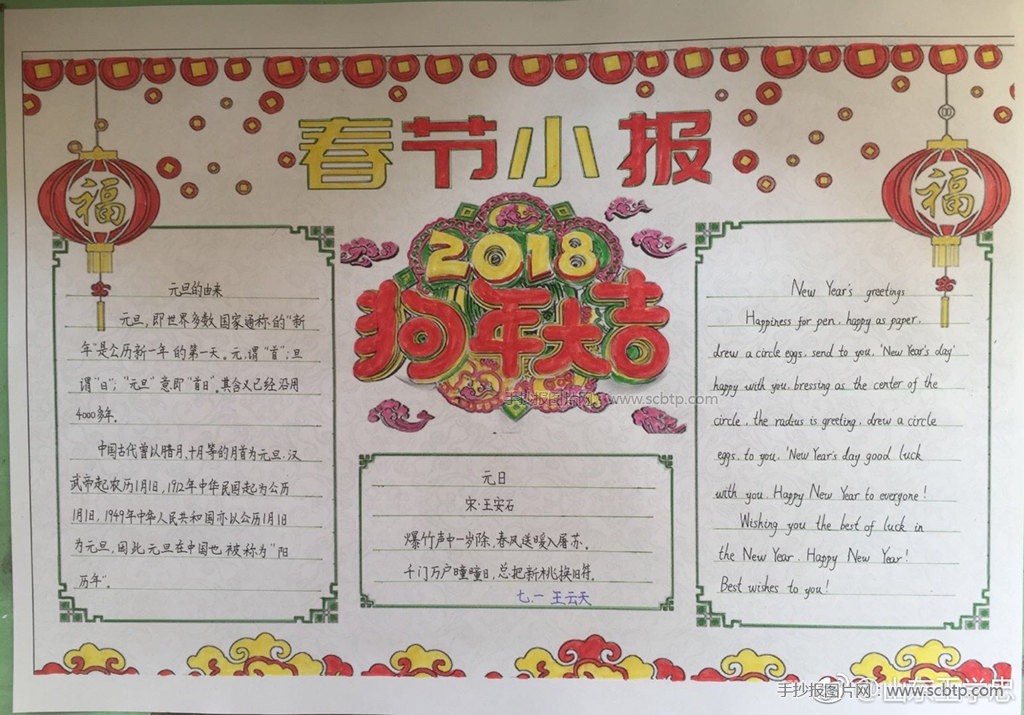 春节小报
福
福
2018
狗年大吉
元旦的由来
元旦,即世界多数国家通称的“新
年”是公历新一年的第一天。元,谓“首”;旦
谓“日”;“元旦”意即“首日”。其含义已经沿用
4000多年。
中国古代曾以腊月,十月等的月首为元旦.汉
武帝起农历1月1日,1912年中华民国起为公历
1月1日,1949年中华人民共和国亦以公历1月1日
为元旦,因此元旦在中国也被称为“阳
历年”。
手抄报图片网:www.scbtp.com
元日
宋·王安石
爆竹声中一岁除,春风送暖入屠苏。
千门万户曈曈日,总把新桃换旧符。
七.一 王云天
New Year's greetings
Happiness for pen, happy as paper,
drew a circle eggs, send to you, 'New Year's day'
happy with you, bressting as the center of the
circle, the radius is greeting, drew a circle
eggs, to you, 'New Year's day good luck
with you, Happy New Year to everyone!
Wishing you the best of luck in
the New Year, Happy New Year!
Best wishes to you!
手抄报图片网:www.scbtp.com